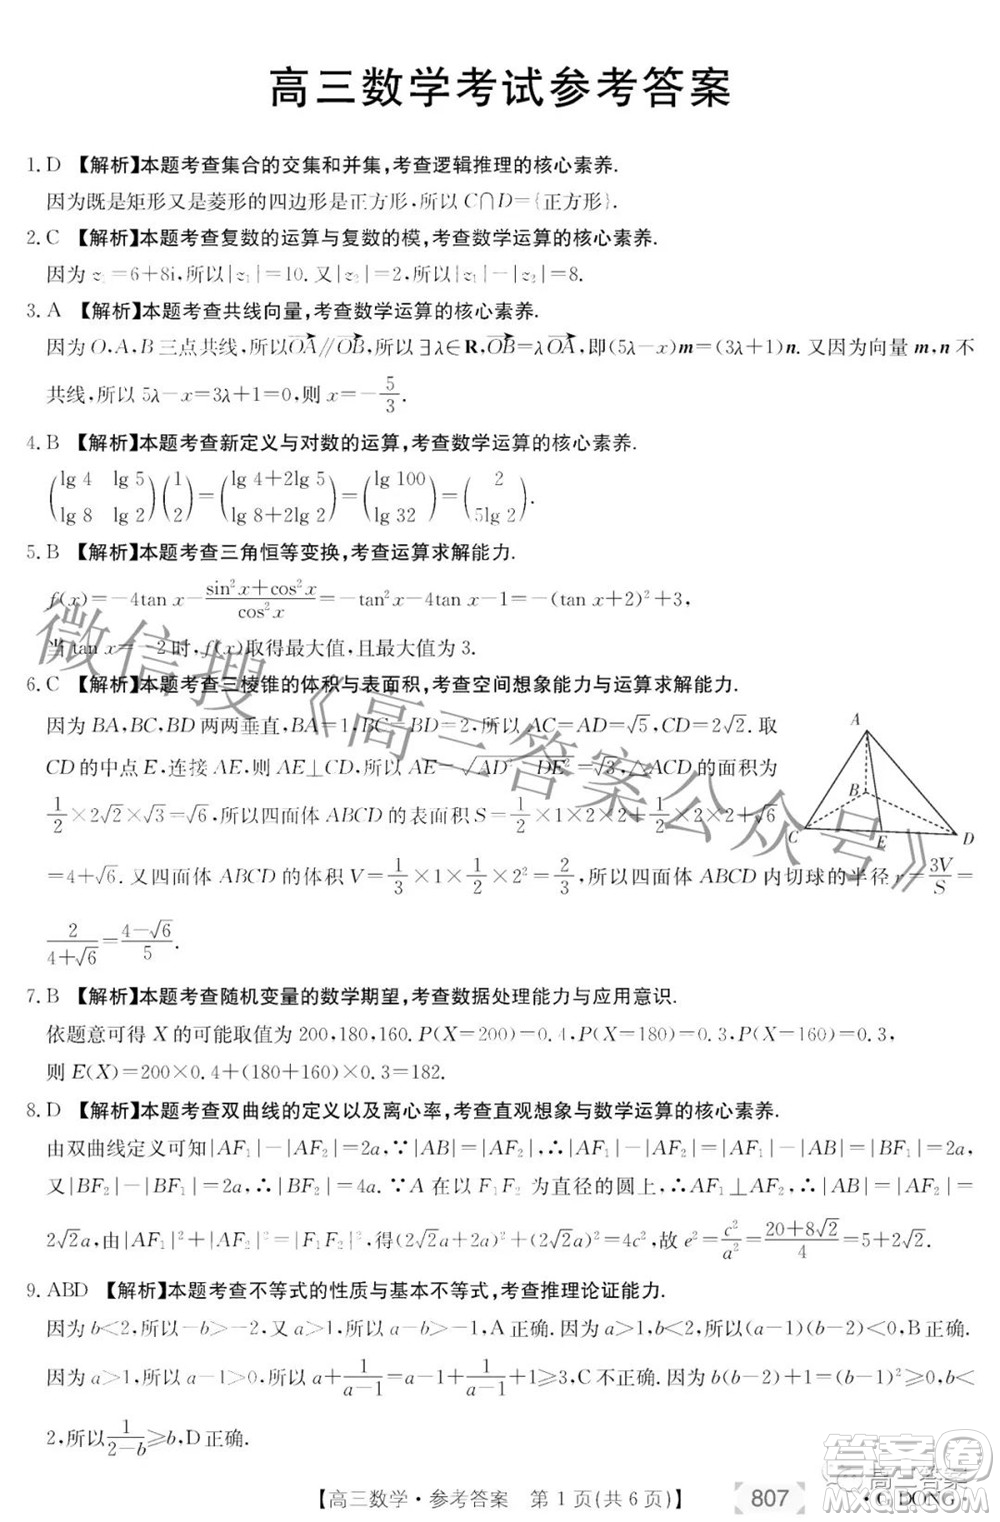 高三数学考试参考答案
1. D 【解析】本题考查集合的交集和并集,考查逻辑推理的核心素养.
因为既是矩形又是菱形的四边形是正方形,所以 C∩D={正方形}.
2. C 【解析】本题考查复数的运算与复数的模,考查数学运算的核心素养.
因为 z₁=6+8i,所以|z₁|=10. 又|z₂|=2,所以|z₁|-|z₂|=8.
3. A 【解析】本题考查共线向量,考查数学运算的核心素养.
因为 O,A,B 三点共线,所以OA∥OB,所以∃λ∈R,OB=λOA,即(5λ-x)m=(3λ+1)n. 又因为向量 m,n 不
共线,所以 5λ-x=3λ+1=0,则 x=-5/3.
4. B 【解析】本题考查新定义与对数的运算,考查数学运算的核心素养.
(lg 4 lg 5 lg 8 lg 2)(1 2)=(lg 4+2lg 5 lg 8+2lg 2)=(lg 100 lg 32)=(2 5lg 2).
5. B 【解析】本题考查三角恒等变换,考查运算求解能力.
f(x)=-4tan x-(sin²x+cos²x)/cos²x=-tan²x-4tan x-1=-(tan x+2)²+3,
当 tan x=-2时,f(x)取得最大值,且最大值为 3.
6. C 【解析】本题考查三棱锥的体积与表面积,考查空间想象能力与运算求解能力.
因为 BA,BC,BD 两两垂直,BA=1,BC=BD=2,所以 AC=AD=√5,CD=2√2. 取
CD 的中点 E,连接 AE,则 AE⊥CD,所以 AE=√AD² DE²=√3,△ACD 的面积为
1/2×2√2×√3=√6,所以四面体 ABCD 的表面积 S=1/2×1×2×2+1/2×2²+√6
=4+√6. 又四面体 ABCD 的体积 V=1/3×1×1/2×2²=2/3,所以四面体 ABCD 内切球的半径 r=3V/S=
2/(4+√6)=(4-√6)/5.
A
B
C
E
D
7. B 【解析】本题考查随机变量的数学期望,考查数据处理能力与应用意识.
依题意可得 X 的可能取值为 200,180,160. P(X=200)=0.4,P(X=180)=0.3,P(X=160)=0.3,
则 E(X)=200×0.4+(180+160)×0.3=182.
8. D 【解析】本题考查双曲线的定义以及离心率,考查直观想象与数学运算的核心素养.
由双曲线定义可知|AF₁|-|AF₂|=2a,∵|AB|=|AF₂|,∴|AF₁|-|AF₂|=|AF₁|-|AB|=|BF₁|=2a,
又|BF₂|-|BF₁|=2a,∴|BF₂|=4a. ∵A 在以 F₁F₂ 为直径的圆上,∴AF₁⊥AF₂,∴|AB|=|AF₂|=
2√2a,由|AF₁|²+|AF₂|²=|F₁F₂|²,得(2√2a+2a)²+(2√2a)²=4c²,故 e²=c²/a²=(20+8√2)/4=5+2√2.
9. ABD 【解析】本题考查不等式的性质与基本不等式,考查推理论证能力.
因为 b<2,所以-b>-2,又 a>1,所以 a-b>-1,A 正确. 因为 a>1,b<2,所以(a-1)(b-2)<0,B 正确.
因为 a>1,所以 a-1>0,所以 a+1/(a-1)=a-1+1/(a-1)+1≥3,C 不正确. 因为 b(b-2)+1=(b-1)²≥0,b<
2,所以1/(2-b)≥b,D 正确.
【高三数学·参考答案 第 1 页(共 6 页)】
807
· G DONG ·
微信搜《高三答案公众号》
高三答案
答案圈
MXQE.COM